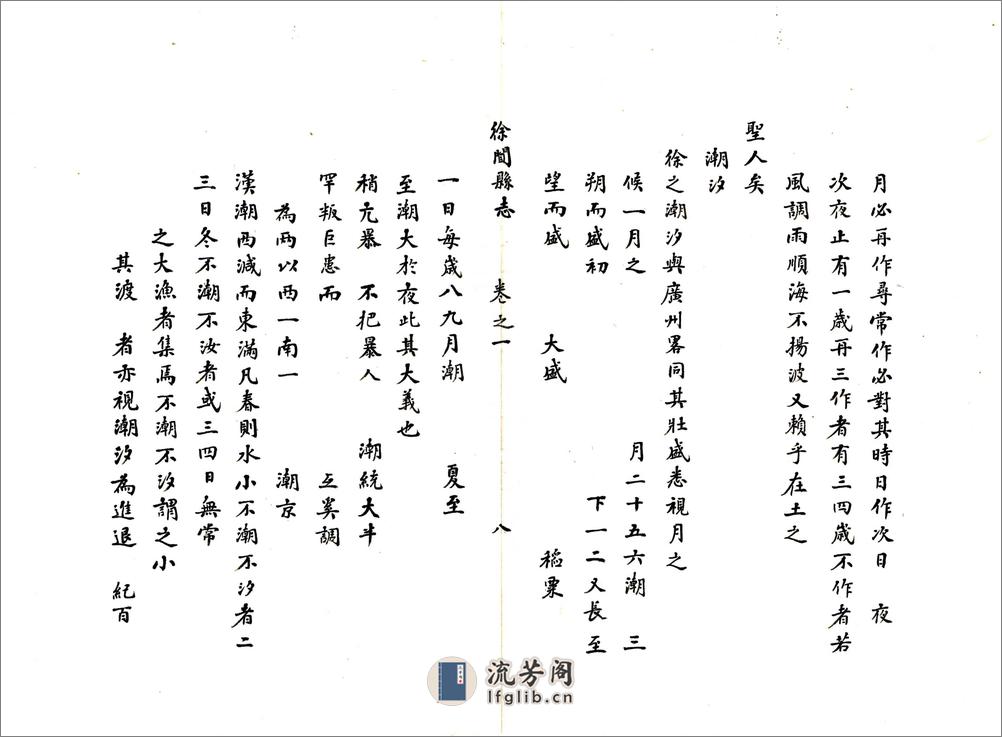 月必再作尋常作必對其時日作次日　夜
次夜止有一歲再三作者有三四歲不作者若
風調雨順海不揚波又賴乎在土之
聖人矣
潮汐
徐之潮汐與廣州畧同其壯盛悉視月之
候一月之　月二十五六潮　三
朔而盛初　下一二又長至
望而盛　大盛　稻粟
徐聞縣志　卷之一　八
一日每歲八九月潮　夏至
至潮大於夜此其大義也
稍亢暴　不把暴人　潮統大半
罕叛巨患而　立奚調
為两以西一南一　潮京
漢潮西減而東滿凡春則水小不潮不汐者二
三日冬不潮不汝者或三四日無常
之大漁者集焉不潮不汐謂之小
其渡　者亦視潮汐為進退　紀百
流芳阁
lfglib.cn